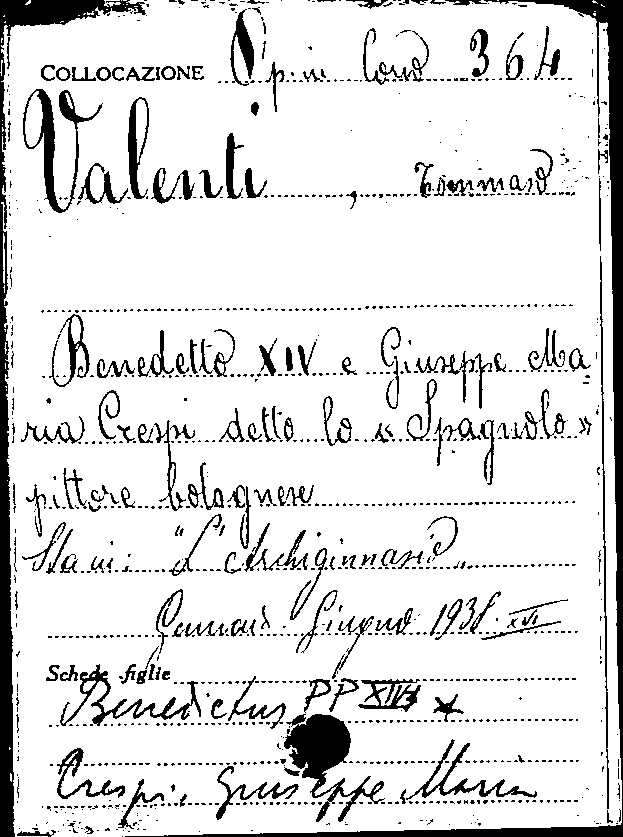 COLLOCAZIONE Op. in Cors 364
Valenti, Tommaso
Benedetto XIV e Giuseppe Ma=
ria Crespi detto lo « Spagnolo »
pittore bolognese
Sta in: "L'Archiginnasio"
Gennaio Giugno 1938. XVI
Schede figlie
Benedictus PP XIV
Crespi, Giuseppe Maria